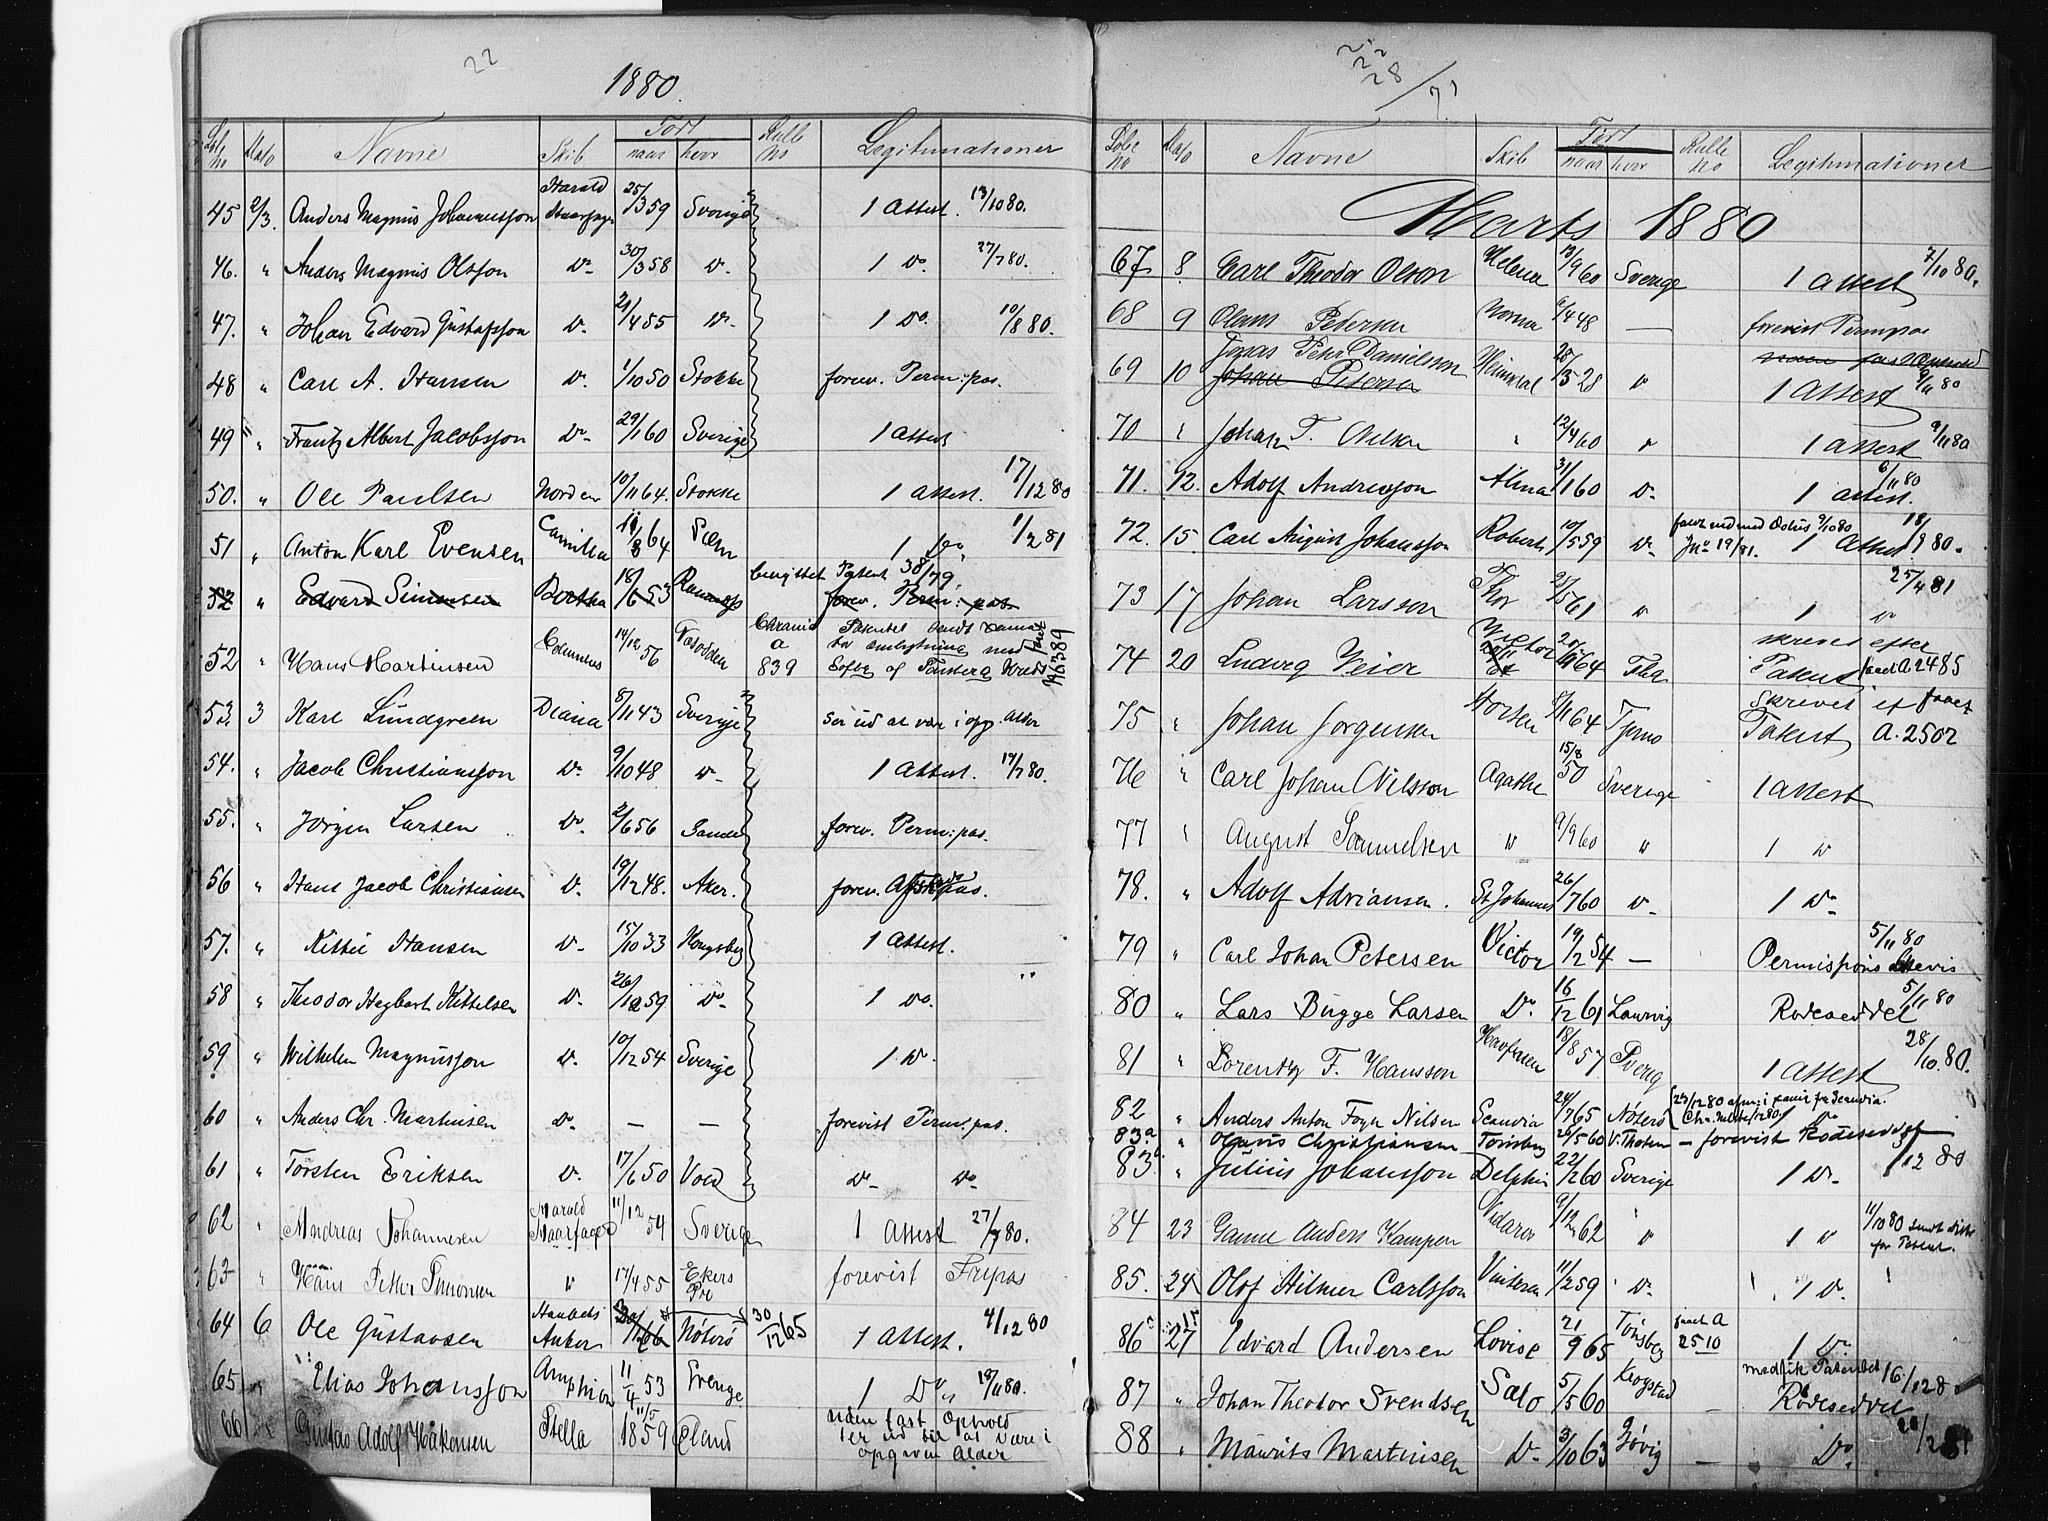 22
1880.
Løbe No Dato Navne Skib Født naar hvor Rulle No Legitimationer
45 2/3. Anders Magnus Johannesson Harald Haarfager 25/3 59 Sverige 1 Attest. 13/10 80.
46. " Anders Magnus Olsson Do 30/3 58 Do. 1 Do. 27/7 80.
47. " Johan Edvard Gustafsson Do. 21/4 55 Do. 1 Do. 10/8 80.
48 " Carl A. Hansen Do. 1/10 50 Stokke forev. Perm: pas.
49 " Frantz Albert Jacobsson Do. 29/1 60 Sverige 1 Attest
50. " Ole Paulsen Norden 10/11 64. Stokke 1 Attest. 17/12 80
51 " Anton Karl Evensen Camilla 11/8 64 Sem 1 Do. 1/2 81
52 " Edvard Simensen Bertha 18/6 53 Ramnæs benyttet Patent 38/79. forev. Perm: pas
52 " Hans Martinsen Columbus 14/12 56 839 Patentet sendt No 389
53. 3 Karl Lundgreen Diana 8/11 43 Sverige Ser ud at vær i opg. Alder
54. " Jacob Christiansson Do. 9/10 48. Do. 1 Attest. 17/7 80.
55. " Jörgen Larsen Do. 2/6 56 Sande forev. Perm: pas.
56 " Hans Jacob Christiansen Do. 19/12 48. Aker. forev. pas.
57. " Kittil Hansen Do. 15/10 33 Kongsberg 1 Attest.
58 " Theodor Hagbart Kittelsen Do. 26/12 59 Do. 1 Do. "
59 " Wilhelm Magnusson Do. 10/12 54 Sverige 1 Do.
60 " Anders Chr. Martinsen Do. — — forevist Perm: pas.
61 " Torsten Eriksen Do. 17/6 50 Vold Do. Do.
62 " Andreas Johannesen Harald Haarfager 11/12 54 Sverige 1 Attest 27/7 80.
63 " Hans Petter Simonsen " 17/4 55 Ekers forevist Fripas
64 6 Ole Gustavsen Anker 30/12 66 Nöterö 30/12 65 1 Attest. 4/12 80
65 " Elias Johansson Amphion 11/4 53 Sverige 1 Do. 18/11 80.
66 Gustav Adolf Håkonsen Stella 11/5 1859 Øland uden fast Ophold ser ud til at være i opgiven Alder
22 28/7
Løbe No Dato Navne Skib Født naar hvor Rulle No Legitimationer
Marts 1880
67 8. Carl Theodor Olson Helena 13/9 60 Sverige 1 Attest 7/10 80.
68 9 Olaus Pedersen Norma 6/4 48 — forevist Permpas
69 10 Jonas Petr Danielsson Johan Petersen Heimdal 28/3 28 " uden fast Ophold 1 Attest 9/11 80
70 " Johan T. Nilsen " 12/4 60 " 1 Attest 9/11 80
71. 12. Adolf Andreasson Alma 31/1 60 Do. 1 Attest. 6/11 80
72. 15. Carl August Johansson Robert 10/5 59 Do. Jno 19/81. 1 Attest 18/9 80.
73 17 Johan Larsson Thor 27/5 61 " 1 " 25/4 81
74 20 Ludvig Veier Victor 20/11 64 skrevet efter Patent faaet A. 2485
75 " Johan Jorgensen Horten 8/11 64 Tjømø Skrevet ef Patent faaet A. 2502
76 " Carl Johan Nilsson Agathe 15/8 50 Sverige 1 Attest
77 " August Samuelsen " 9/9 60 " 1 Do
78. " Adolf Adriansen. St Johannes 26/7 60 Do. 1 Do
79 " Carl Johan Petersen Victor 19/2 54 — Permissions bevis 5/11 80
80 " Lars Bugge Larsen Do. 16/12 61 Laurvig Rodeseddel 5/11 80
81 " Lorentz F. Hansson Havfruen 18/8 57 Sverig 1 Attest 28/10 80.
82 " Anders Anton Foyn Nilsen Scandia 24/7 65 Nöterö 23/12 80 afm: i fra Scandia. 1 Do
83a " Olavus Christiansen Tønsberg 26/5 60 V. Thoten — forevist Rodeseddel
83b. " Julius Johansson Delphin 22/12 60 Sverige 1 Do. 1/12 80
84 23 Gamme Anders Hampen Nidaros 9/12 62 " 1 " 11/10 80 sendt for Patent.
85. 24 Olof Hilmer Carlsson Vinteren 11/2 59 Do. " 1 Do. "
86 27 15 Edvard Andersen Lovise 21/9 65 Tønsberg faaet A 2510 1 Do.
87 " Johan Theodor Svendsen Salo 5/5 60 Krogstad — medfik Patentet 16/12 8 Rodeseddel
88 " Mauritz Martinsen Do. 3/10 63 Gjøvig — Do. /2 81